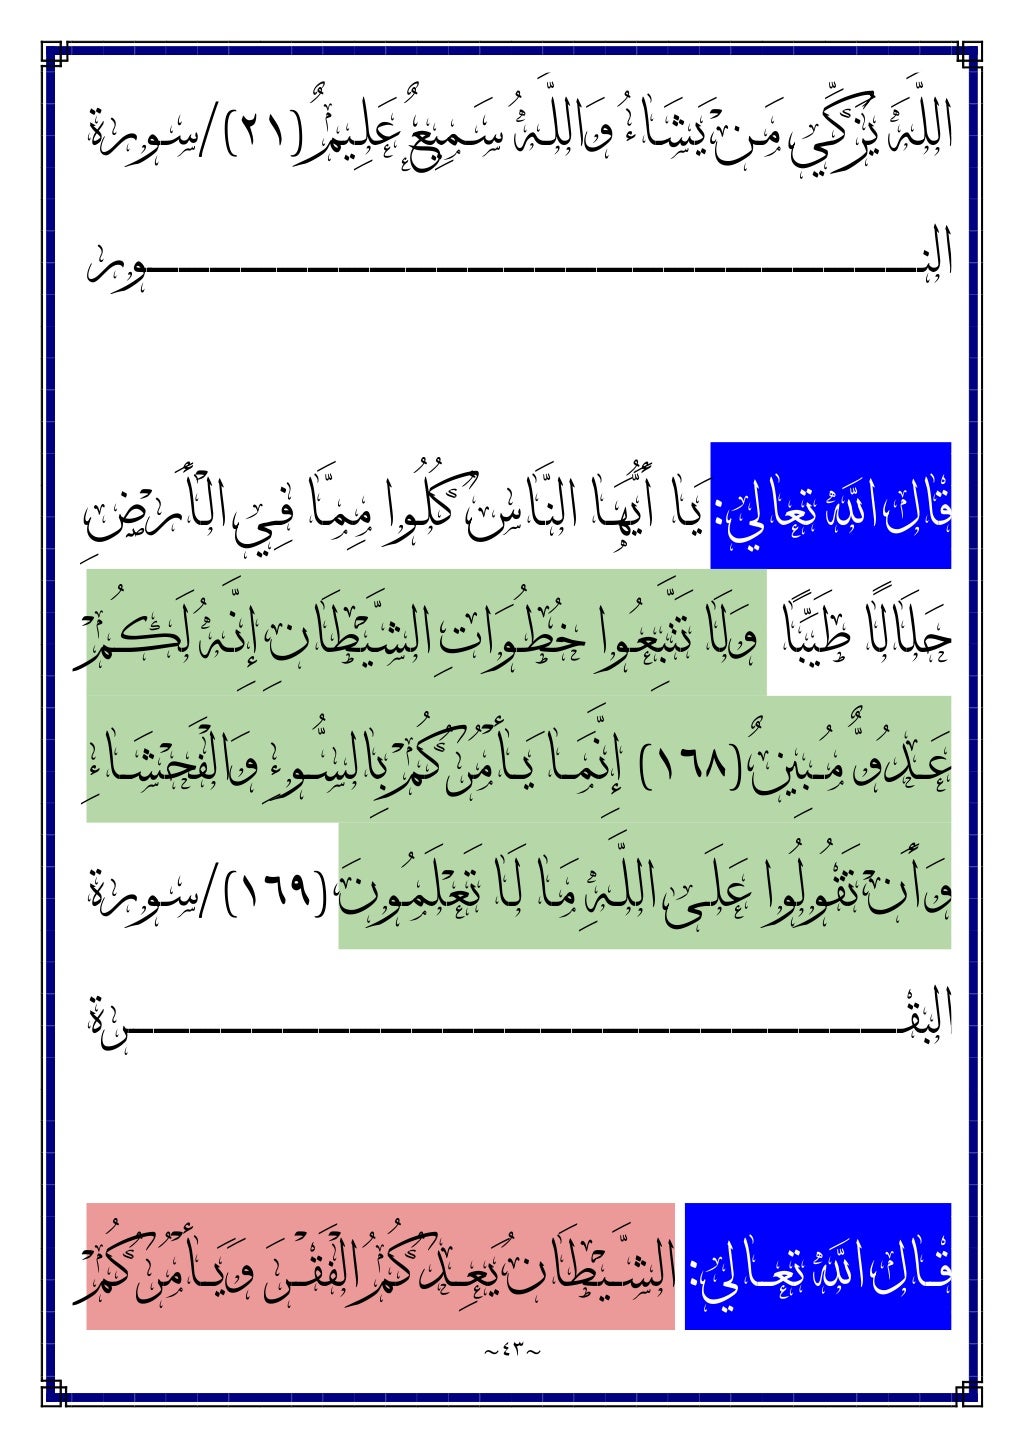 اللَّهَ يُزَكِّي مَن يَشَاءُ وَاللَّهُ سَمِيعٌ عَلِيمٌ (٢١)/سورة
النـــــــــــــــــــــــــــــــــــــــــــــــــور
قال الله تعالي: يَا أَيُّهَا النَّاسُ كُلُوا مِمَّا فِي الْأَرْضِ
حَلَالًا طَيِّبًا وَلَا تَتَّبِعُوا خُطُوَاتِ الشَّيْطَانِ إِنَّهُ لَكُمْ
عَدُوٌّ مُبِينٌ (١٦٨) إِنَّمَا يَأْمُرُكُمْ بِالسُّوءِ وَالْفَحْشَاءِ
وَأَنْ تَقُولُوا عَلَى اللَّهِ مَا لَا تَعْلَمُونَ (١٦٩)/سورة
البقـــــــــــــــــــــــــــــــــــــــــــــــــرة
قال الله تعالي: الشَّيْطَانُ يَعِدُكُمُ الْفَقْرَ وَيَأْمُرُكُمْ
~٤٣~